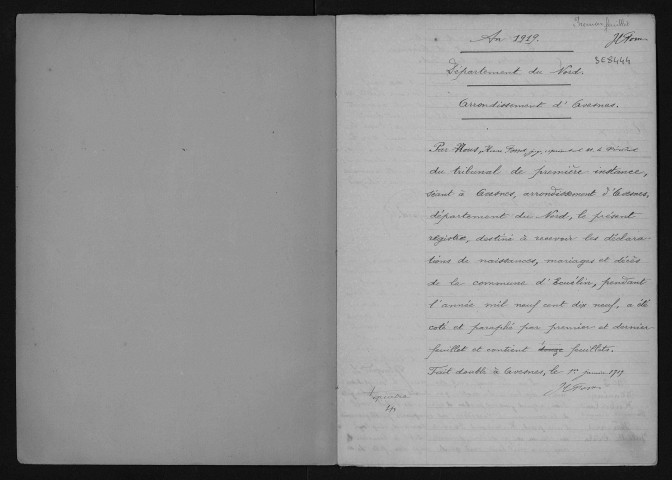 Premier feuillet
An 1919.
3E8444
Département du Nord.
Arrondissement d'Avesnes.
Par Nous,
du tribunal de première instance,
séant à Avesnes, arrondissement d'Avesnes,
département du Nord, le présent
registre, destiné à recevoir les déclara-
tions de naissances, mariages et décès
de la commune d'Ecuélin, pendant
l'année mil neuf cent dix neuf, a été
coté et paraphé par premier et dernier
feuillet et contient douze feuillets.
Fait double à Avesnes, le 1er janvier 1919